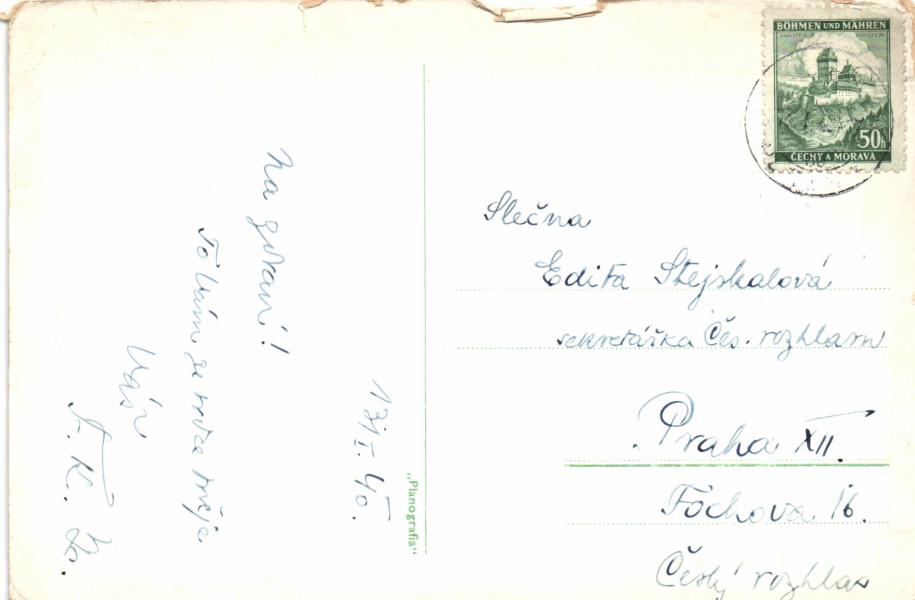 BÖHMEN UND MÄHREN
KARLSTEIN
KARLŠTEJN
50h
ČECHY A MORAVA
Slečna
Edita Stejskalová
sekretářka Čes. rozhlasu
Praha XII.
Fochova 16.
Český rozhlas
"Planografia"
13/I. 40.
Na zdraví!
To Vám ze srdce přeje
Váš